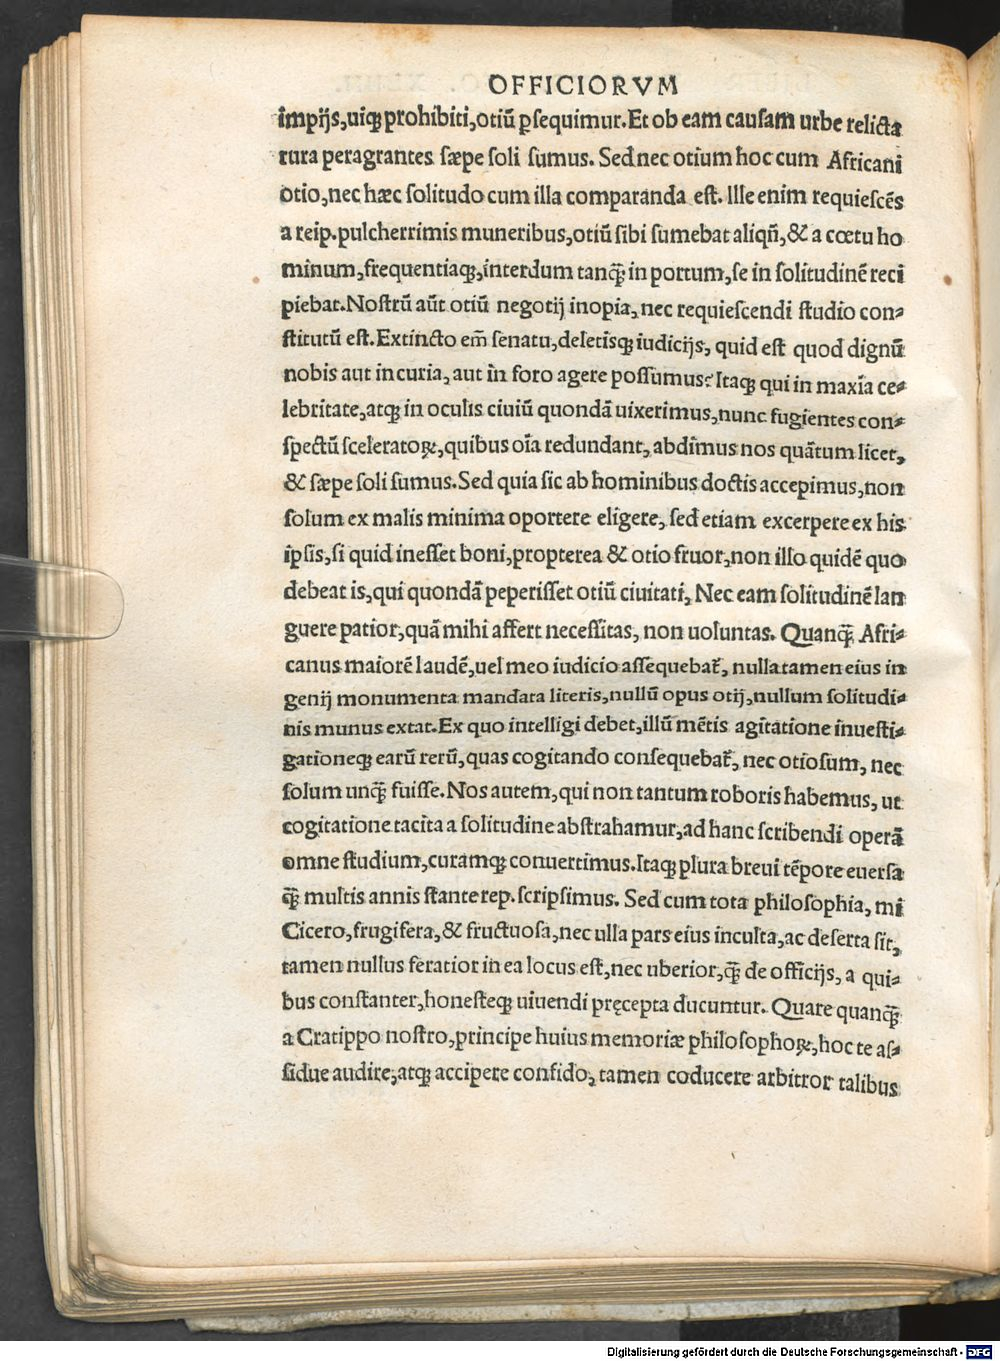 OFFICIORVM
impijs,uiqꝫ prohibiti,otiũ ꝑsequimur.Et ob eam causam urbe relicta
rura peragrantes sæpe soli sumus. Sed nec otium hoc cum Africani
otio,nec hæc solitudo cum illa comparanda est. Ille enim requiescẽs
a reip.pulcherrimis muneribus,otiũ sibi sumebat aliqñ,& a cœtu ho
minum,frequentiaqꝫ,interdum tanꝗ̃ in portum,se in solitudinẽ reci
piebat.Nostrũ aũt otiũ negotij inopia,nec requiescendi studio con⸗
stitutũ est.Extincto em̃ senatu,deletisqꝫ iudicijs, quid est quod dignũ
nobis aut in curia,aut in foro agere possumus?Itaqꝫ qui in maxīa ce⸗
lebritate,atqꝫ in oculis ciuiũ quondã uixerimus,nunc fugientes con⸗
spectũ sceleratoꝝ,quibus oīa redundant,abdimus nos quãtum licet,
& sæpe soli sumus.Sed quia sic ab hominibus doctis accepimus,non
solum ex malis minima oportere eligere,sed etiam excerpere ex his
ipsis,si quid inesset boni,propterea & otio fruor,non illo quidẽ quo
debeat is,qui quondã peperisset otiũ ciuitati, Nec eam solitudinẽ lan
guere patior,quã mihi affert necessitas, non uoluntas. Quanꝗ̃ Afri⸗
canus maiorẽ laudẽ,uel meo iudicio assequebat̃, nulla tamen eius in
genij monumenta mandata literis,nullũ opus otij,nullum solitudi⸗
nis munus extat.Ex quo intelligi debet,illũ mẽtis agitatione inuesti⸗
gationeqꝫ earũ rerũ,quas cogitando consequebat̃, nec otiosum, nec
solum unꝗ̃ fuisse.Nos autem,qui non tantum roboris habemus, ut
cogitatione tacita a solitudine abstrahamur,ad hanc scribendi operã
omne studium,curamqꝫ conuertimus.Itaqꝫ plura breui tẽpore euersa
ꝗ̃ multis annis stante rep.scripsimus. Sed cum tota philosophia, mi
Cicero,frugifera,& fructuosa,nec ulla pars eius inculta,ac deserta sit,
tamen nullus feratior in ea locus est,nec uberior,ꝗ̃ de officijs, a qui⸗
bus constanter,honesteqꝫ uiuendi pręcepta ducuntur. Quare quanꝗ̃
a Cratippo nostro,principe huius memoriæ philosophoꝝ,hoc te as⸗
sidue audire,atqꝫ accipere confido,tamen coducere arbitror talibus
Digitalisierung gefördert durch die Deutsche Forschungsgemeinschaft - DFG